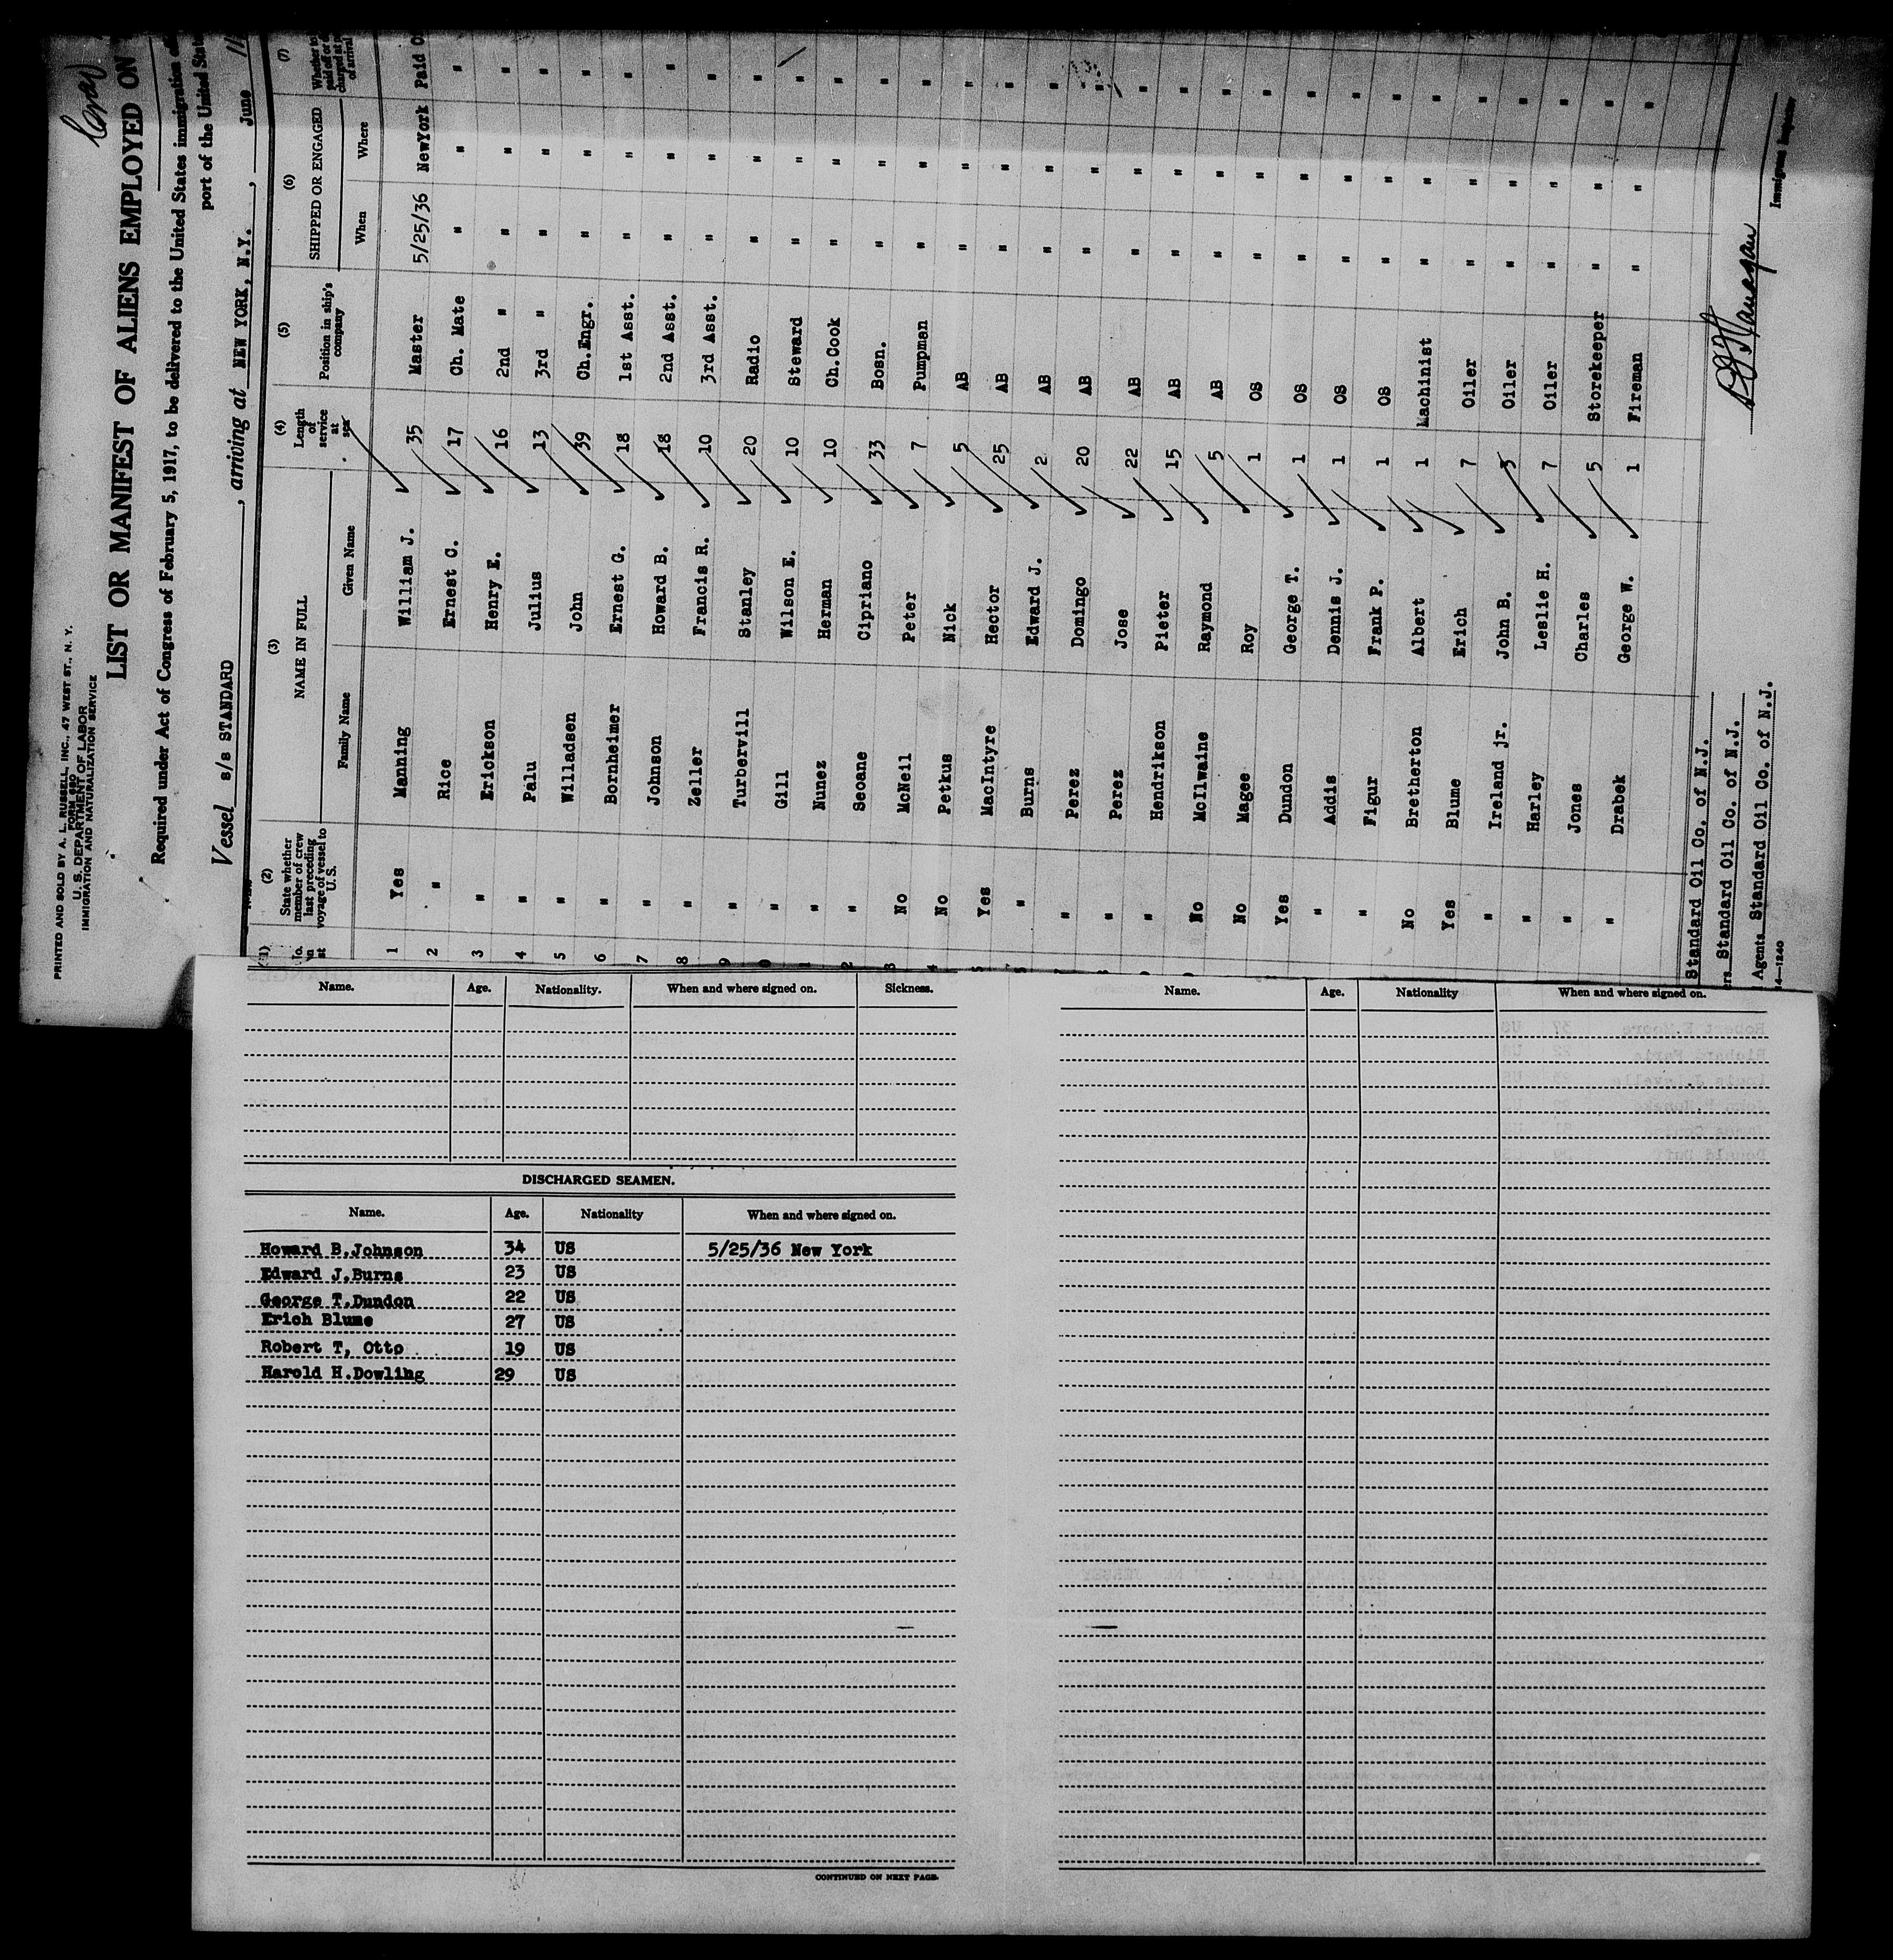 PRINTED AND SOLD BY A. L. RUSSELL, INC., 47 WEST ST., N. Y.
FORM 680
U. S. DEPARTMENT OF LABOR
IMMIGRATION AND NATURALIZATION SERVICE
LIST OR MANIFEST OF ALIENS EMPLOYED ON
Required under Act of Congress of February 5, 1917, to be delivered to the United States immigration
port of the United
Vessel s/s STANDARD, arriving at NEW YORK, N.Y., June 11
(2) (3) (4) (5) (6) (7)
State whether member of crew last preceding voyage of vessel to U.S. NAME IN FULL Length of service at sea Position in ship's company SHIPPED OR ENGAGED
Family Name Given Name When Where
1 Yes Manning William J. 35 Master 5/25/36 NewYork Paid
2 " Rice Ernest C. 17 Ch. Mate " " "
3 " Erickson Henry E. 16 2nd " " " "
4 " Palu Julius 13 3rd " " " "
5 " Willadsen John 39 Ch.Engr. " " "
6 " Bornheimer Ernest G. 18 1st Asst. " " "
7 " Johnson Howard B. 18 2nd Asst. " " "
8 " Zeller Francis R. 10 3rd Asst. " " "
9 " Turbervill Stanley 20 Radio " " "
0 " Gill Wilson E. 10 Steward " " "
1 " Nunez Herman 10 Ch.Cook " " "
2 " Seoane Cipriano 33 Bosn. " " "
3 No McNeil Peter 7 Pumpman " " "
4 No Petkus Nick 5 AB " " "
5 Yes MacIntyre Hector 25 AB " " "
6 " Burns Edward J. 2 AB " " "
" Perez Domingo 20 AB " " "
" Perez Jose 22 AB " " "
" Hendrikson Pieter 15 AB " " "
No McIlwaine Raymond 5 AB " " "
No Magee Roy 1 OS " " "
Yes Dundon George T. 1 OS " " "
" Addis Dennis J. 1 OS " " "
" Figur Frank P. 1 OS " " "
No Bretherton Albert 1 Machinist " " "
Yes Blume Erich 7 Oiler " " "
" Ireland jr. John B. 3 Oiler " " "
" Harley Leslie H. 7 Oiler " " "
" Jones Charles 5 Storekeeper " " "
" Drabek George W. 1 Fireman " " "
Standard Oil Co. of N.J.
Standard Oil Co. of N.J.
Agents Standard Oil Co. of N.J.
Immigrant Inspector
Name. Age. Nationality. When and where signed on. Sickness.
DISCHARGED SEAMEN.
Name. Age. Nationality When and where signed on.
Howard B.Johnson 34 US 5/25/36 New York
Edward J.Burns 23 US
George T.Dundon 22 US
Erich Blume 27 US
Robert T, Otto 19 US
Harold H.Dowling 29 US
CONTINUED ON NEXT PAGE.
Name. Age. Nationality When and where signed on.